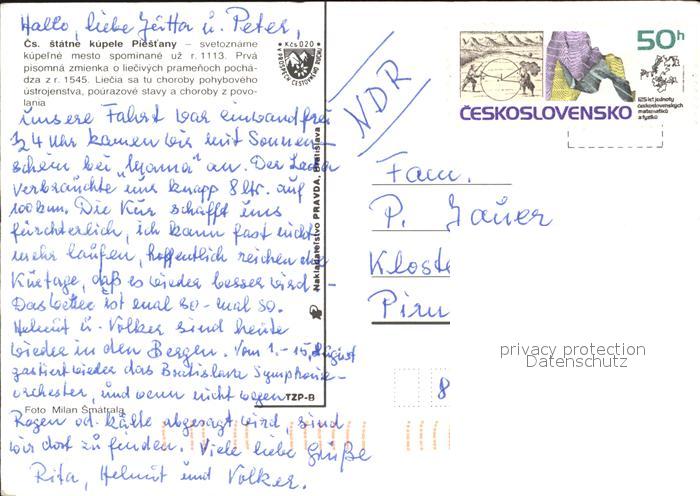 Hallo, liebe Jutta u. Peter,
Čs. štátne kúpele Piešťany – svetoznáme
kúpeľné mesto spomínané už r. 1113. Prvá
písomná zmienka o liečivých prameňoch pochá-
dza z r. 1545. Liečia sa tu choroby pohybového
ústrojenstva, poúrazové stavy a choroby z povo-
lania
Kčs 020
unsere Fahrt war einwandfrei
1/2 4 Uhr kamen wir mit Sonnen-
schein bei "Mama" an. Der Lada
verbrauchte nur knapp 8 ltr. auf
100 km. Die Kur schafft uns
fürchterlich, ich kann fast nicht
mehr laufen, hoffentlich reichen die
Kurtage, daß es wieder besser wird –
Das Wetter ist mal so – mal so.
Helmut u. Volker sind heute
wieder in den Bergen. Vom 1. – 15. August
gastiert wieder das Bratislava Symphonie-
orchester, und wenn nicht wegen
Regen od. Kälte abgesagt wird, sind
wir dort zu finden. Viele liebe Grüße
Rita, Helmut und Volker.
Foto Milan Šmátrala
TZP-B
Nakladateľstvo PRAVDA, Bratislava
NDR
50h
ČESKOSLOVENSKO
125 let jednoty
československých
matematiků
a fyziků
Fam.
P.
Kloste
Pirn
8
privacy protection
Datenschutz